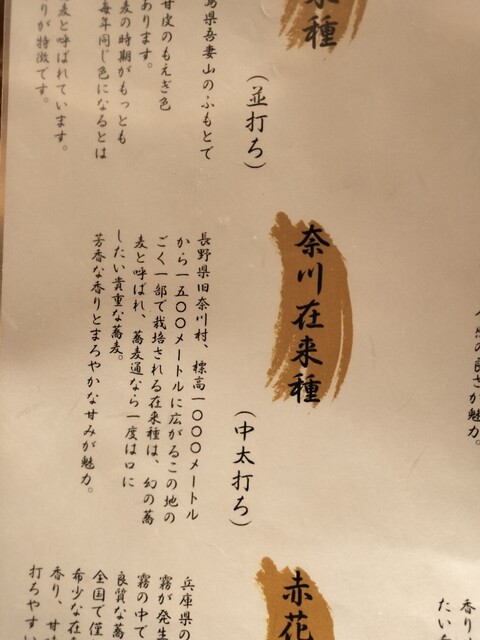 来種
（並打ち）
島県吾妻山のふもとで
甘皮のもえぎ色
あります。
麦の時期がもっとも
毎年同じ色になるとは
麦と呼ばれています。
りが特徴です。
の良さが魅力。
奈川在来種
（中太打ち）
長野県旧奈川村、標高一〇〇〇メートル
から一五〇〇メートルに広がるこの地の
ごく一部で栽培される在来種は、幻の蕎
麦と呼ばれ、蕎麦通なら一度は口に
したい貴重な蕎麦。
芳香な香りとまろやかな甘みが魅力。
香り
たい
赤花
兵庫県の
霧が発生
霧の中で
良質な蕎
全国で僅
希少な在
香り、甘
打ちやすい